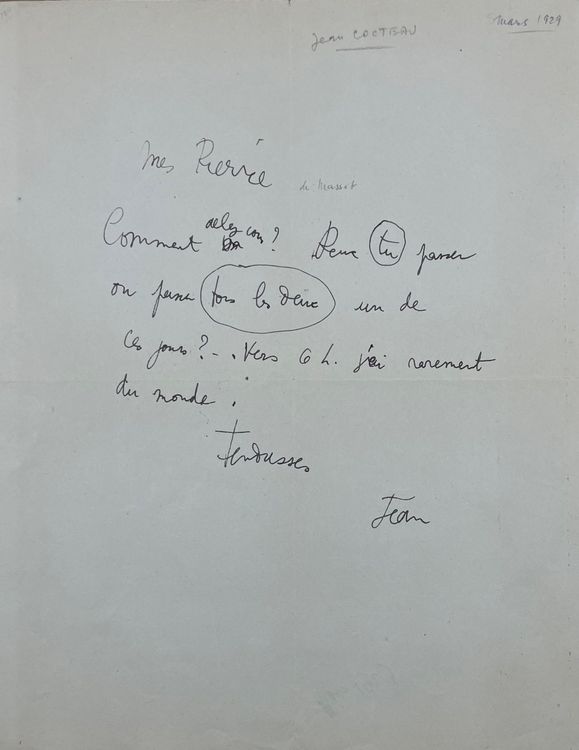 Jean COCTEAU
mars 1929
Mes Pierre
de Massot
Comment allez vous ? Peux tu passer
ou passer tous les deux un de
ces jours ? - . Vers 6 h. j'ai rarement
du monde .
Tendresses
Jean